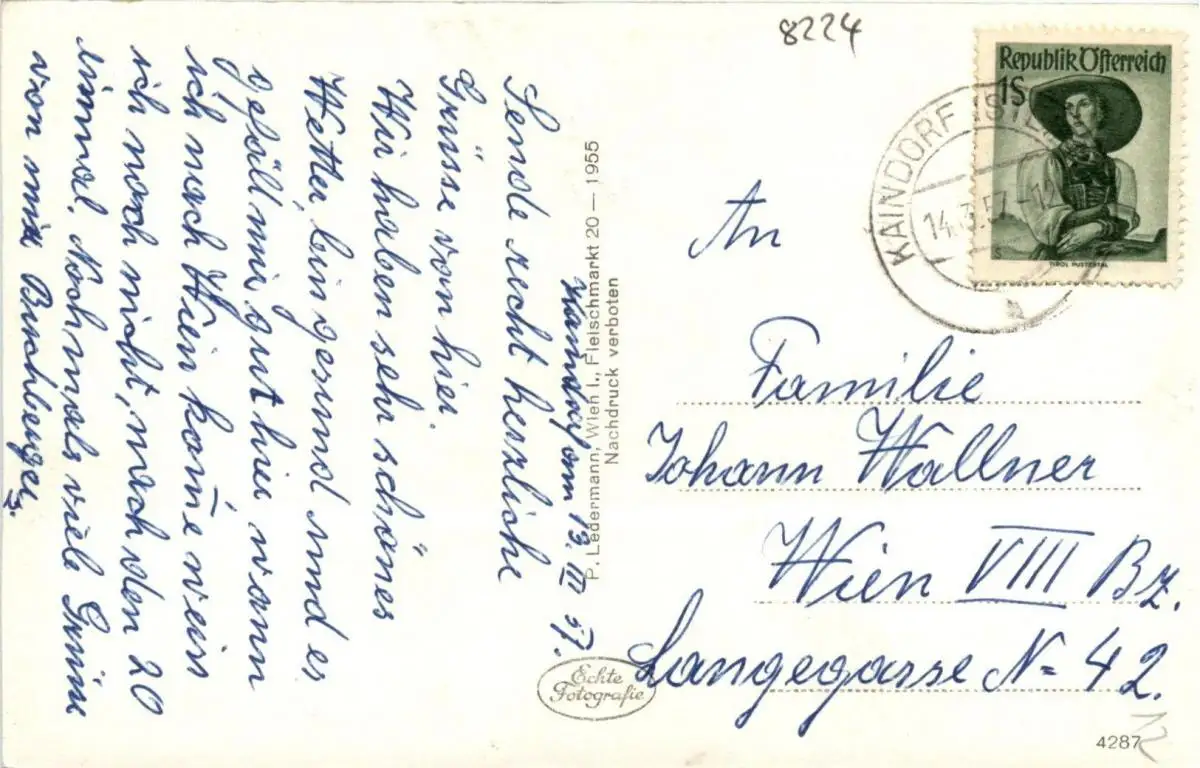 8224
Republik Österreich
1S
TIROL PUSTERTAL
KAINDORF (STE
14.3.57-12
Kaindorf am 13. III 57.
Sende recht herzliche
Grüsse von hier.
Wir haben sehr schönes
Wetter, bin gesund und es
gefäll mir gut hier wann
ich nach Wien kom̄e weis
ich noch nicht, nach den 20
einmal. Nochmals viele Grüsse
von mir
P. Ledermann, Wien I., Fleischmarkt 20 — 1955
Nachdruck verboten
An
Familie
Johann Wallner
Wien VIII Bz.
Langegasse N= 42.
Echte
Fotografie
4287